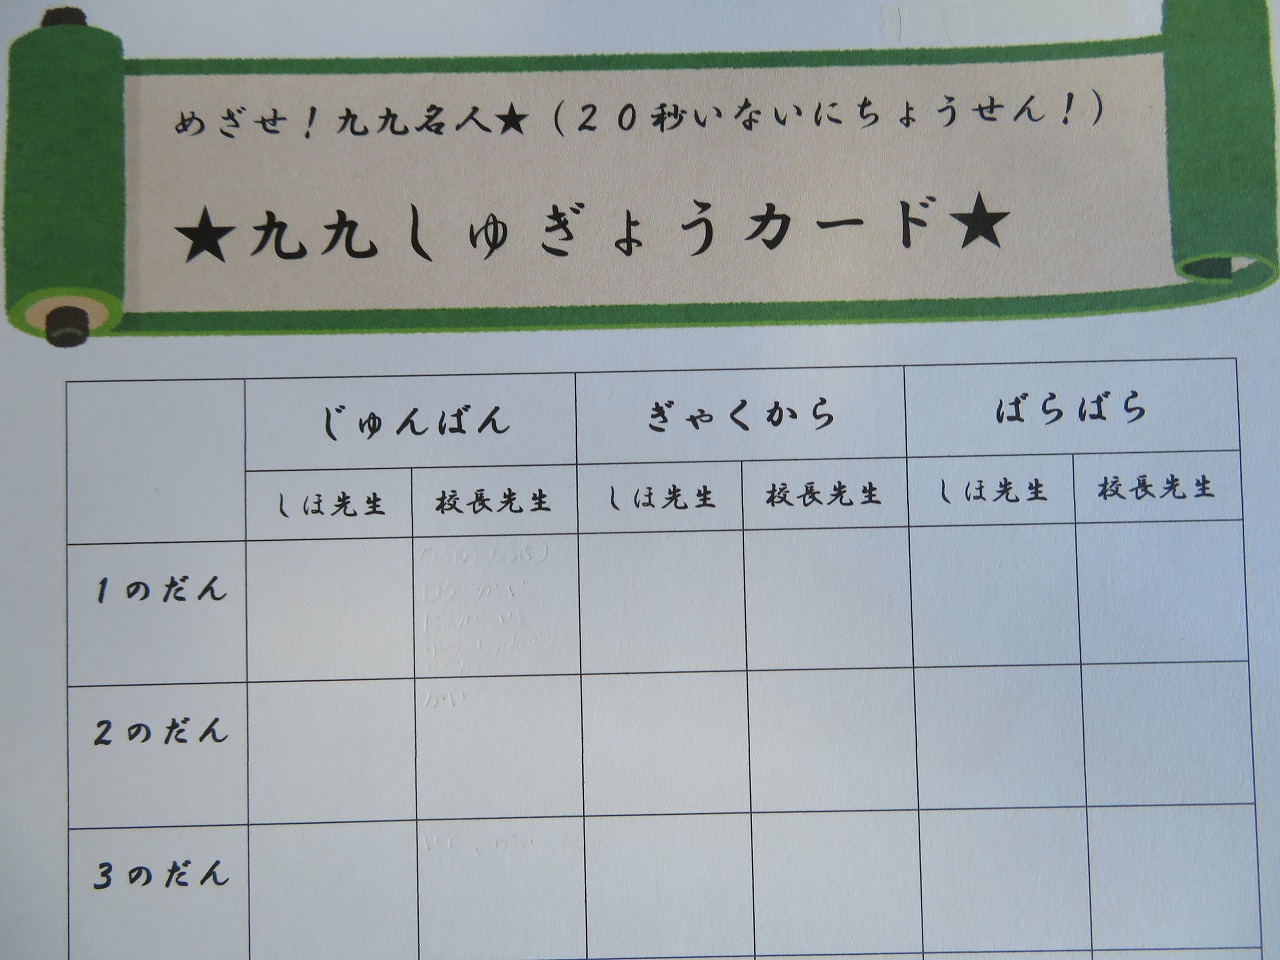 めざせ！九九名人★（２０秒いないにちょうせん！）
★九九しゅぎょうカード★
じゅんばん ぎゃくから ばらばら
しほ先生 校長先生 しほ先生 校長先生 しほ先生 校長先生
1のだん
2のだん
かい
3のだん